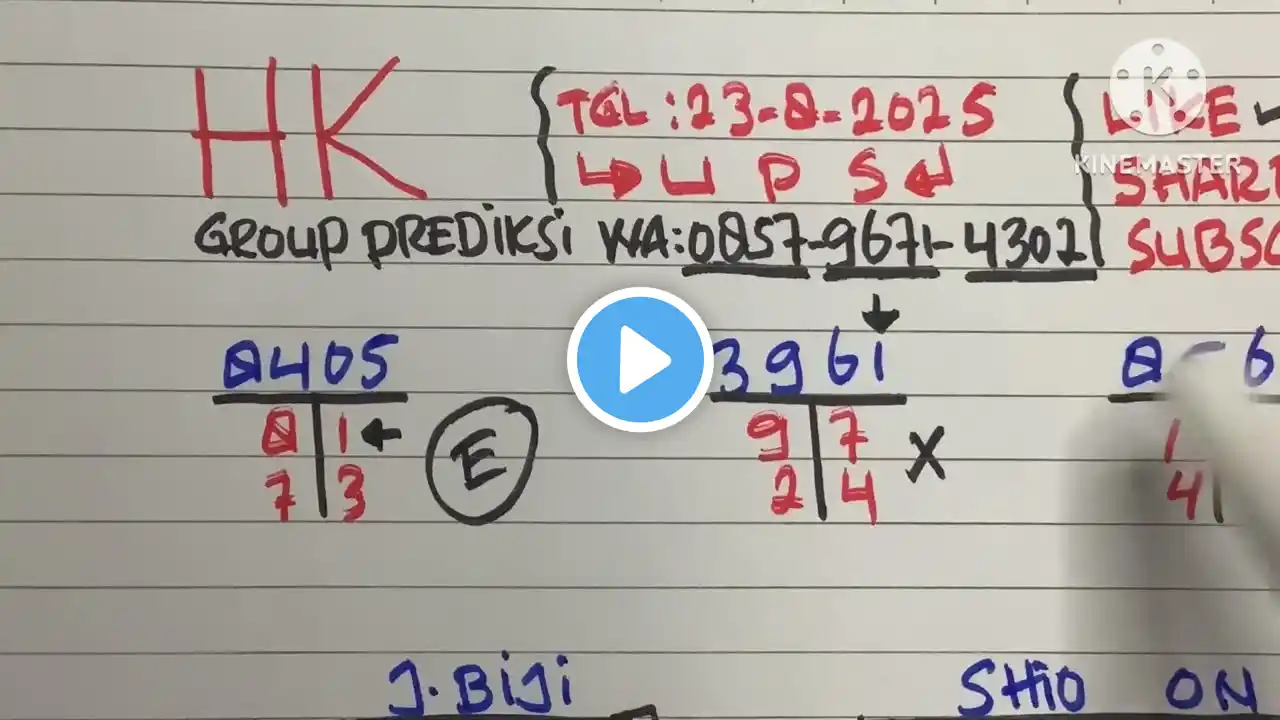 HK
TGL : 23-8-2025
LIKE
U P S
SHARE
GROUP PREDIKSI WA: 0857-9671-4302
SUBSC
KINEMASTER
8405
3961
8 - 6
8 1
9 7
X
1
7 3
E
2 4
4
J. BIJI
SHIO ON